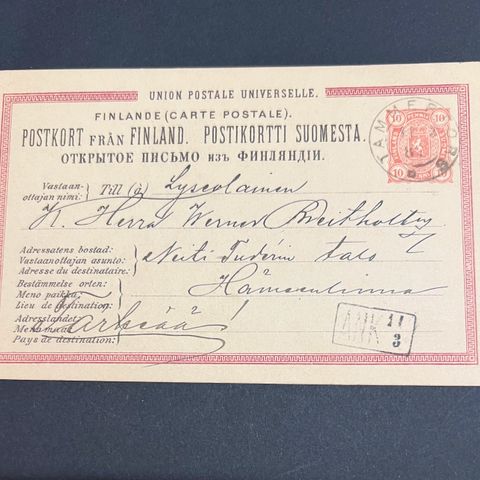 UNION POSTALE UNIVERSELLE.
FINLANDE (CARTE POSTALE).
POSTKORT FRÅN FINLAND. POSTIKORTTI SUOMESTA.
ОТКРЫТОЕ ПИСЬМО изъ ФИНЛЯНДІИ.
10 PENNI 10
10 10
TAMMERFORS
Vastaan-
ottajan nimi: Till (à) Lyseolainen
K. Herra Werner Breitholtz
Adressatens bostad:
Vastaanottajan asunto: Neiti Tudérin talo
Adresse du destinataire:
Bestämmelse orten:
Meno paikka: Hämeenlinna
Lieu de destination:
Adresslandet:
Meno maa:
Pays de destination:
ANK 11
3